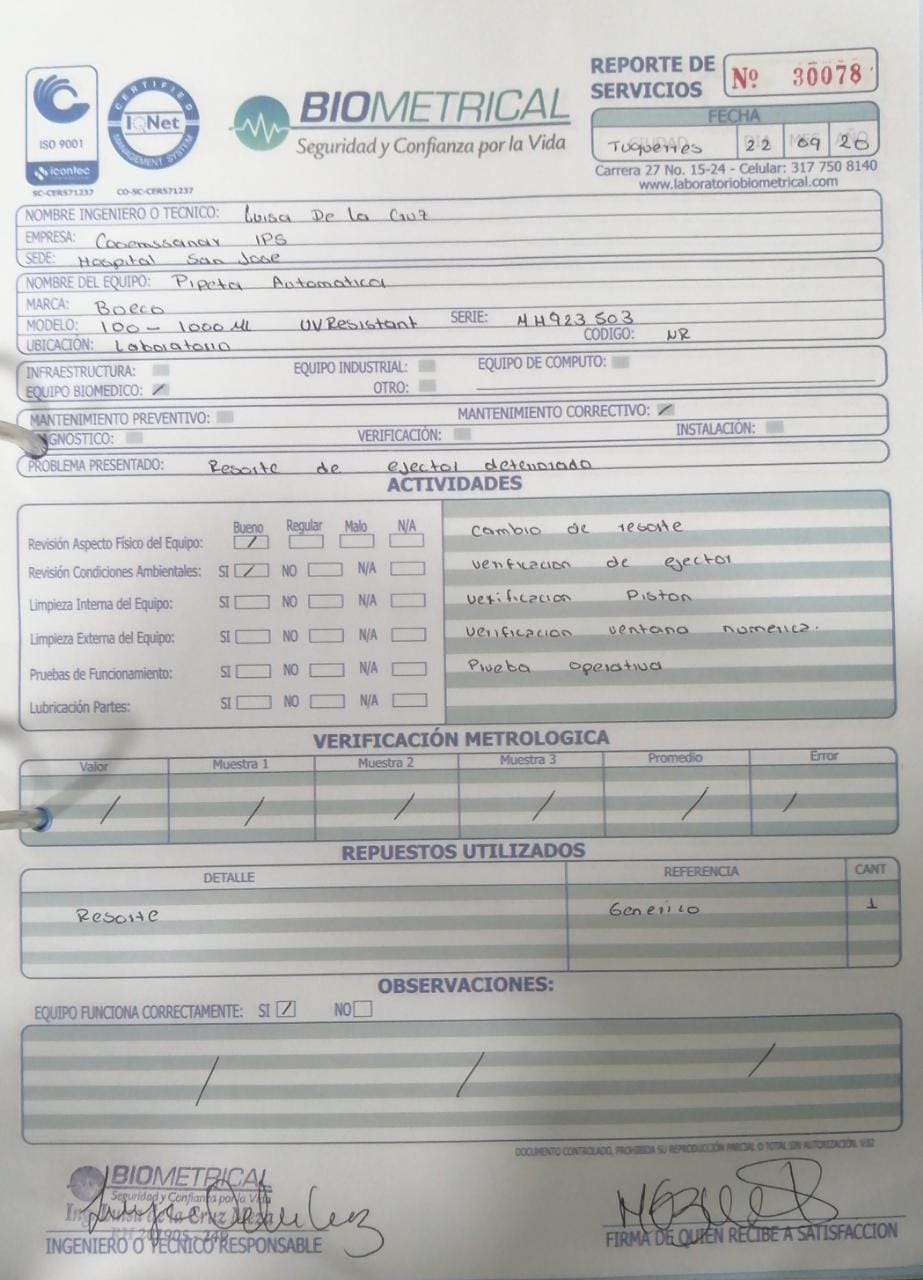 REPORTE DE SERVICIOS
Nº 30078
BIOMETRICAL
Seguridad y Confianza por la Vida
ISO 9001
icontec
SC-CER571237
CERTIFIED
IQNet
MANAGEMENT SYSTEM
CO-SC-CER571237
FECHA
CIUDAD DIA MES AÑO
Tuquerres 22 09 20
Carrera 27 No. 15-24 - Celular: 317 750 8140
www.laboratoriobiometrical.com
NOMBRE INGENIERO O TECNICO: Luisa De la Cruz
EMPRESA: Cooemssanar IPS
SEDE: Hospital San Jose
NOMBRE DEL EQUIPO: Pipeta Automatica
MARCA: Boeco
MODELO: 100 - 1000 Ml UV Resistant SERIE: MM923503
UBICACIÓN: Laboratorio CODIGO: NR
INFRAESTRUCTURA: EQUIPO INDUSTRIAL: EQUIPO DE COMPUTO:
EQUIPO BIOMEDICO: / OTRO:
MANTENIMIENTO PREVENTIVO: MANTENIMIENTO CORRECTIVO: /
GNOSTICO: VERIFICACIÓN: INSTALACIÓN:
PROBLEMA PRESENTADO: Resorte de ejector deteriorado
ACTIVIDADES
Bueno Regular Malo N/A
Revisión Aspecto Físico del Equipo: /
Revisión Condiciones Ambientales: SI / NO N/A
Limpieza Interna del Equipo: SI NO N/A
Limpieza Externa del Equipo: SI NO N/A
Pruebas de Funcionamiento: SI NO N/A
Lubricación Partes: SI NO N/A
Cambio de resorte
verificacion de ejector
verificacion Piston
verificacion ventana numerica.
Prueba operativa
VERIFICACIÓN METROLOGICA
Valor Muestra 1 Muestra 2 Muestra 3 Promedio Error
/ / / / / /
REPUESTOS UTILIZADOS
DETALLE REFERENCIA CANT
Resorte Generico 1
OBSERVACIONES:
EQUIPO FUNCIONA CORRECTAMENTE: SI / NO
/ / /
DOCUMENTO CONTROLADO, PROHIBIDA SU REPRODUCCIÓN PARCIAL O TOTAL SIN AUTORIZACIÓN. V.02
BIOMETRICAL
Seguridad y Confianza por la Vida
de la Cruz
INGENIERO O TECNICO RESPONSABLE
FIRMA DE QUIEN RECIBE A SATISFACCION